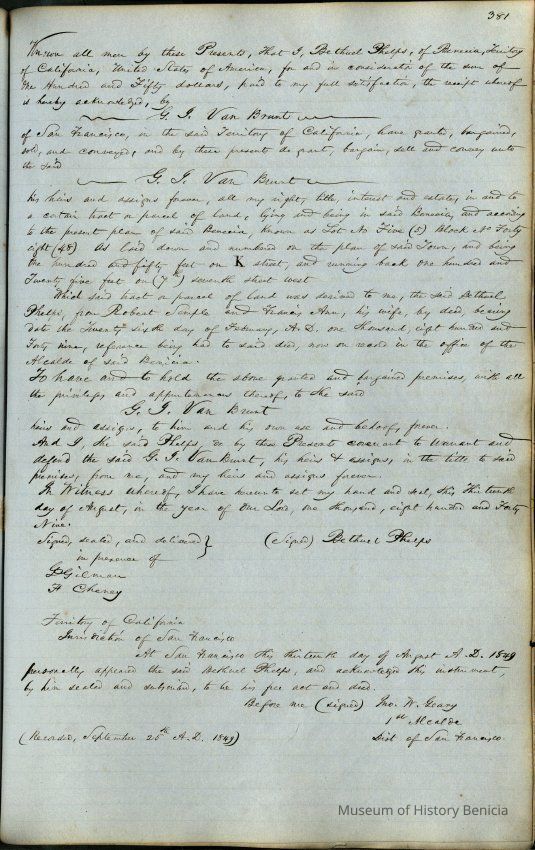 381
Know all men by these Presents, That I, Bethuel Phelps, of Benicia, Territory
of California, United States of America, for and in consideration of the sum of
One Hundred and Fifty dollars, paid to my full satisfaction, the receipt whereof
is hereby acknowledged, by
G. J. Van Brunt
of San Francisco, in the said Territory of California, have grants, bargained,
sold, and conveyed, and by these presents do grant, bargain, sell and convey unto
the said
G. J. Van Brunt
his heirs and assigns forever, all my right, title, interest and estate, in and to
a certain tract or parcel of land, lying and being in said Benicia, and according
to the present plan of said Benicia, known as Lot No Five (5) Block No Forty
eight (48) As laid down and numbered on the plan of said Town, and being
One hundred and fifty feet on K street, and running back one hundred and
Twenty five feet on (7th) seventh street west
Which said tract or parcel of land was deeded to me, the said Bethuel
Phelps, from Robert Semple and Francis Ann, his wife, by deed, bearing
date the Twenty sixth day of February, A. D. one thousand, eight hundred and
Forty nine, reference being had to said deed, now on record in the office of the
Alcalde of said Benicia.
To have and to hold the above granted and bargained premises, with all
the privileges and appurtenances thereof, to the said
G. J. Van Brunt
heirs and assigns, to him and his own use and behoof, forever.
And I, the said Phelps, do by these Presents covenant to Warrant and
defend the said G. J. Van Brunt, his heirs & assigns, in the title to said
premises, from me, and my heirs and assigns forever.
In Witness whereof, I have hereunto set my hand and seal, this Thirteenth
day of August, in the year of Our Lord, one thousand, eight hundred and Forty
Nine.
Signed, sealed, and delivered } (Signed) Bethuel Phelps
in presence of
Gilman
F Cheney
Territory of California
Jurisdiction of San Francisco
At San Francisco this thirteenth day of August A. D. 1849
personally appeared the said Bethuel Phelps, and acknowledged this instrument,
by him sealed and subscribed, to be his free act and deed.
Before me (signed) Jno. W. Geary
1st Alcalde
(Recorded, September 25th A. D. 1849) Dist of San Francisco
Museum of History Benicia